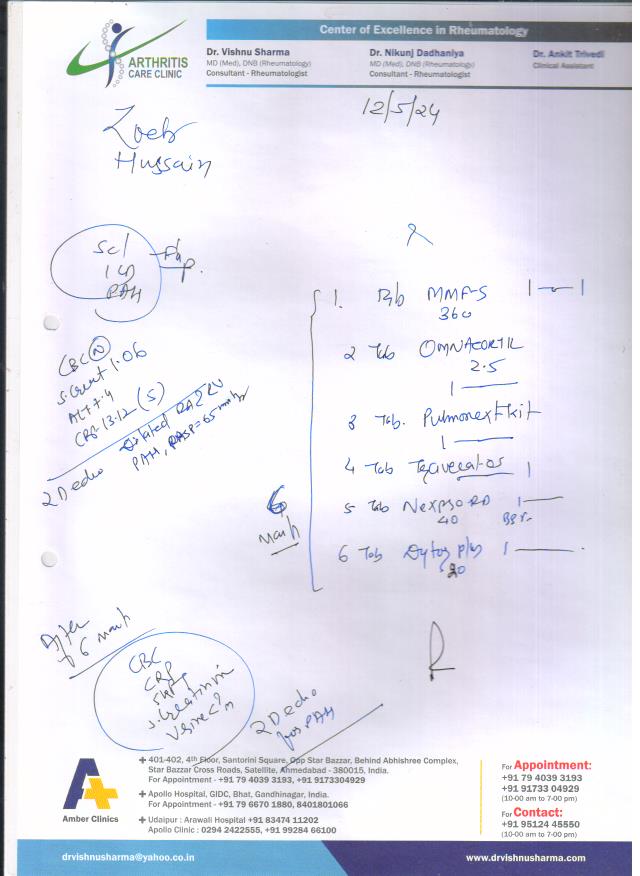 Center of Excellence in Rheumatology
ARTHRITIS
CARE CLINIC
Dr. Vishnu Sharma
MD (Med), DNB (Rheumatology)
Consultant - Rheumatologist
Dr. Nikunj Dadhaniya
MD (Med), DNB (Rheumatology)
Consultant - Rheumatologist
Dr. Ankit Trivedi
Clinical Assistant
12/5/24
Hussain
PAH
CBC (N)
S.Creat 1.06
CRP 13.12 (S)
2D echo Dilated RA RV
PAH, RASP=65
1. MMF-S 1 — 1
360
2 Tab OMNACORTIL
2.5
1 —
3 Tab. Pulmonext kit
1 —
4 Tab 1
5 Tab Nexpro RD 1 —
40
6 Tab Dytor plus 1 —
20
6
After
6
CBC
CRP
S.Creatinine
2D echo
for PAH
401-402, 4th Floor, Santorini Square, Opp Star Bazzar, Behind Abhishree Complex,
Star Bazzar Cross Roads, Satellite, Ahmedabad - 380015, India.
For Appointment - +91 79 4039 3193, +91 9173304929
Apollo Hospital, GIDC, Bhat, Gandhinagar, India.
For Appointment - +91 79 6670 1880, 8401801066
Udaipur : Arawali Hospital +91 83474 11202
Apollo Clinic : 0294 2422555, +91 99284 66100
Amber Clinics
For Appointment:
+91 79 4039 3193
+91 91733 04929
(10-00 am to 7-00 pm)
For Contact:
+91 95124 45550
(10-00 am to 7-00 pm)
drvishnusharma@yahoo.co.in
www.drvishnusharma.com